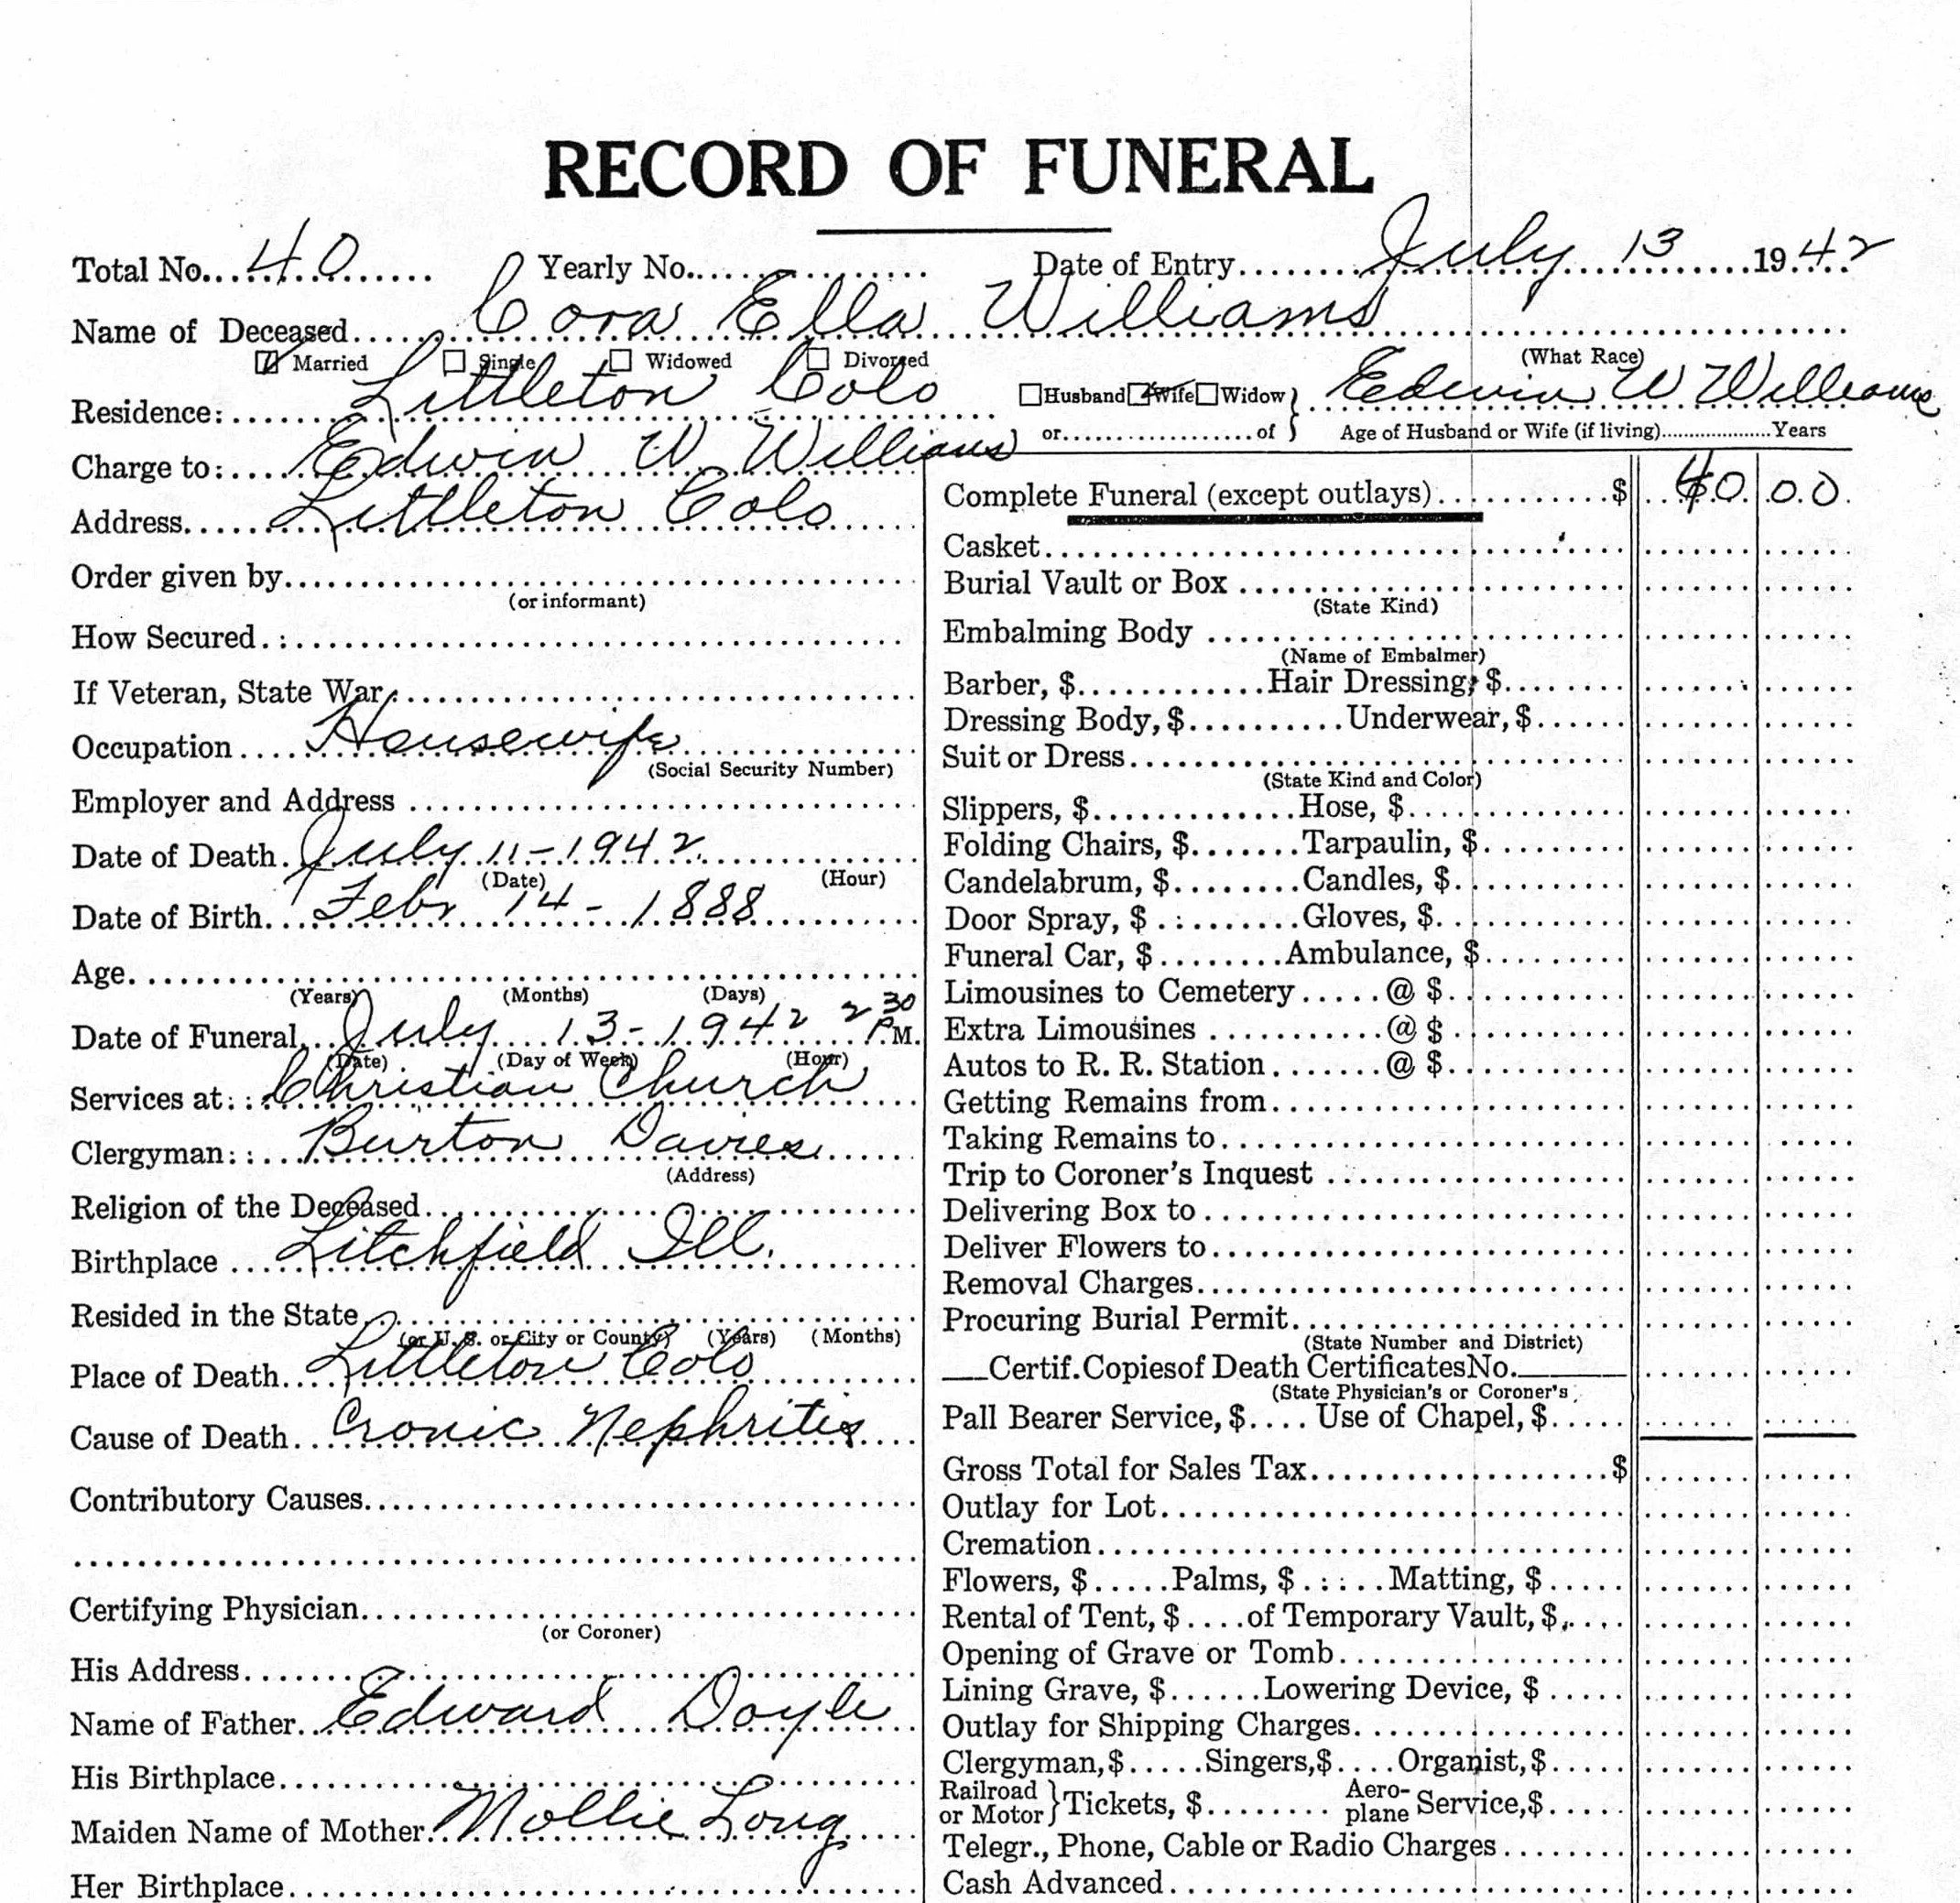 RECORD OF FUNERAL
Total No. 40 Yearly No. Date of Entry July 13 1942
Name of Deceased Cora Ella Williams
Married Single Widowed Divorced (What Race)
Residence: Littleton Colo Husband Wife Widow Edwin W Williams
or of Age of Husband or Wife (if living) Years
Charge to: Edwin W. Williams
Address Littleton Colo
Order given by
(or informant)
How Secured
If Veteran, State War
Occupation Housewife
(Social Security Number)
Employer and Address
Date of Death July 11-1942
(Date) (Hour)
Date of Birth Febr 14-1888
Age
(Years) (Months) (Days)
Date of Funeral July 13-1942 2 30 P.M.
(Date) (Day of Week) (Hour)
Services at: Christian Church
Clergyman: Burton Davies
(Address)
Religion of the Deceased
Birthplace Litchfield Ill.
Resided in the State
(or U. S. or City or County) (Years) (Months)
Place of Death Littleton Colo
Cause of Death Cronic Nephritis
Contributory Causes
Certifying Physician
(or Coroner)
His Address
Name of Father Edward Doyle
His Birthplace
Maiden Name of Mother Mollie Long
Her Birthplace
Complete Funeral (except outlays) $ 40 00
Casket
Burial Vault or Box
(State Kind)
Embalming Body
(Name of Embalmer)
Barber, $ Hair Dressing, $
Dressing Body, $ Underwear, $
Suit or Dress
(State Kind and Color)
Slippers, $ Hose, $
Folding Chairs, $ Tarpaulin, $
Candelabrum, $ Candles, $
Door Spray, $ Gloves, $
Funeral Car, $ Ambulance, $
Limousines to Cemetery @ $
Extra Limousines @ $
Autos to R. R. Station @ $
Getting Remains from
Taking Remains to
Trip to Coroner's Inquest
Delivering Box to
Deliver Flowers to
Removal Charges
Procuring Burial Permit
(State Number and District)
Certif. Copies of Death Certificates No.
(State Physician's or Coroner's
Pall Bearer Service, $ Use of Chapel, $
Gross Total for Sales Tax $
Outlay for Lot
Cremation
Flowers, $ Palms, $ Matting, $
Rental of Tent, $ of Temporary Vault, $
Opening of Grave or Tomb
Lining Grave, $ Lowering Device, $
Outlay for Shipping Charges
Clergyman, $ Singers, $ Organist, $
Railroad or Motor } Tickets, $ Aero-plane Service, $
Telegr., Phone, Cable or Radio Charges
Cash Advanced